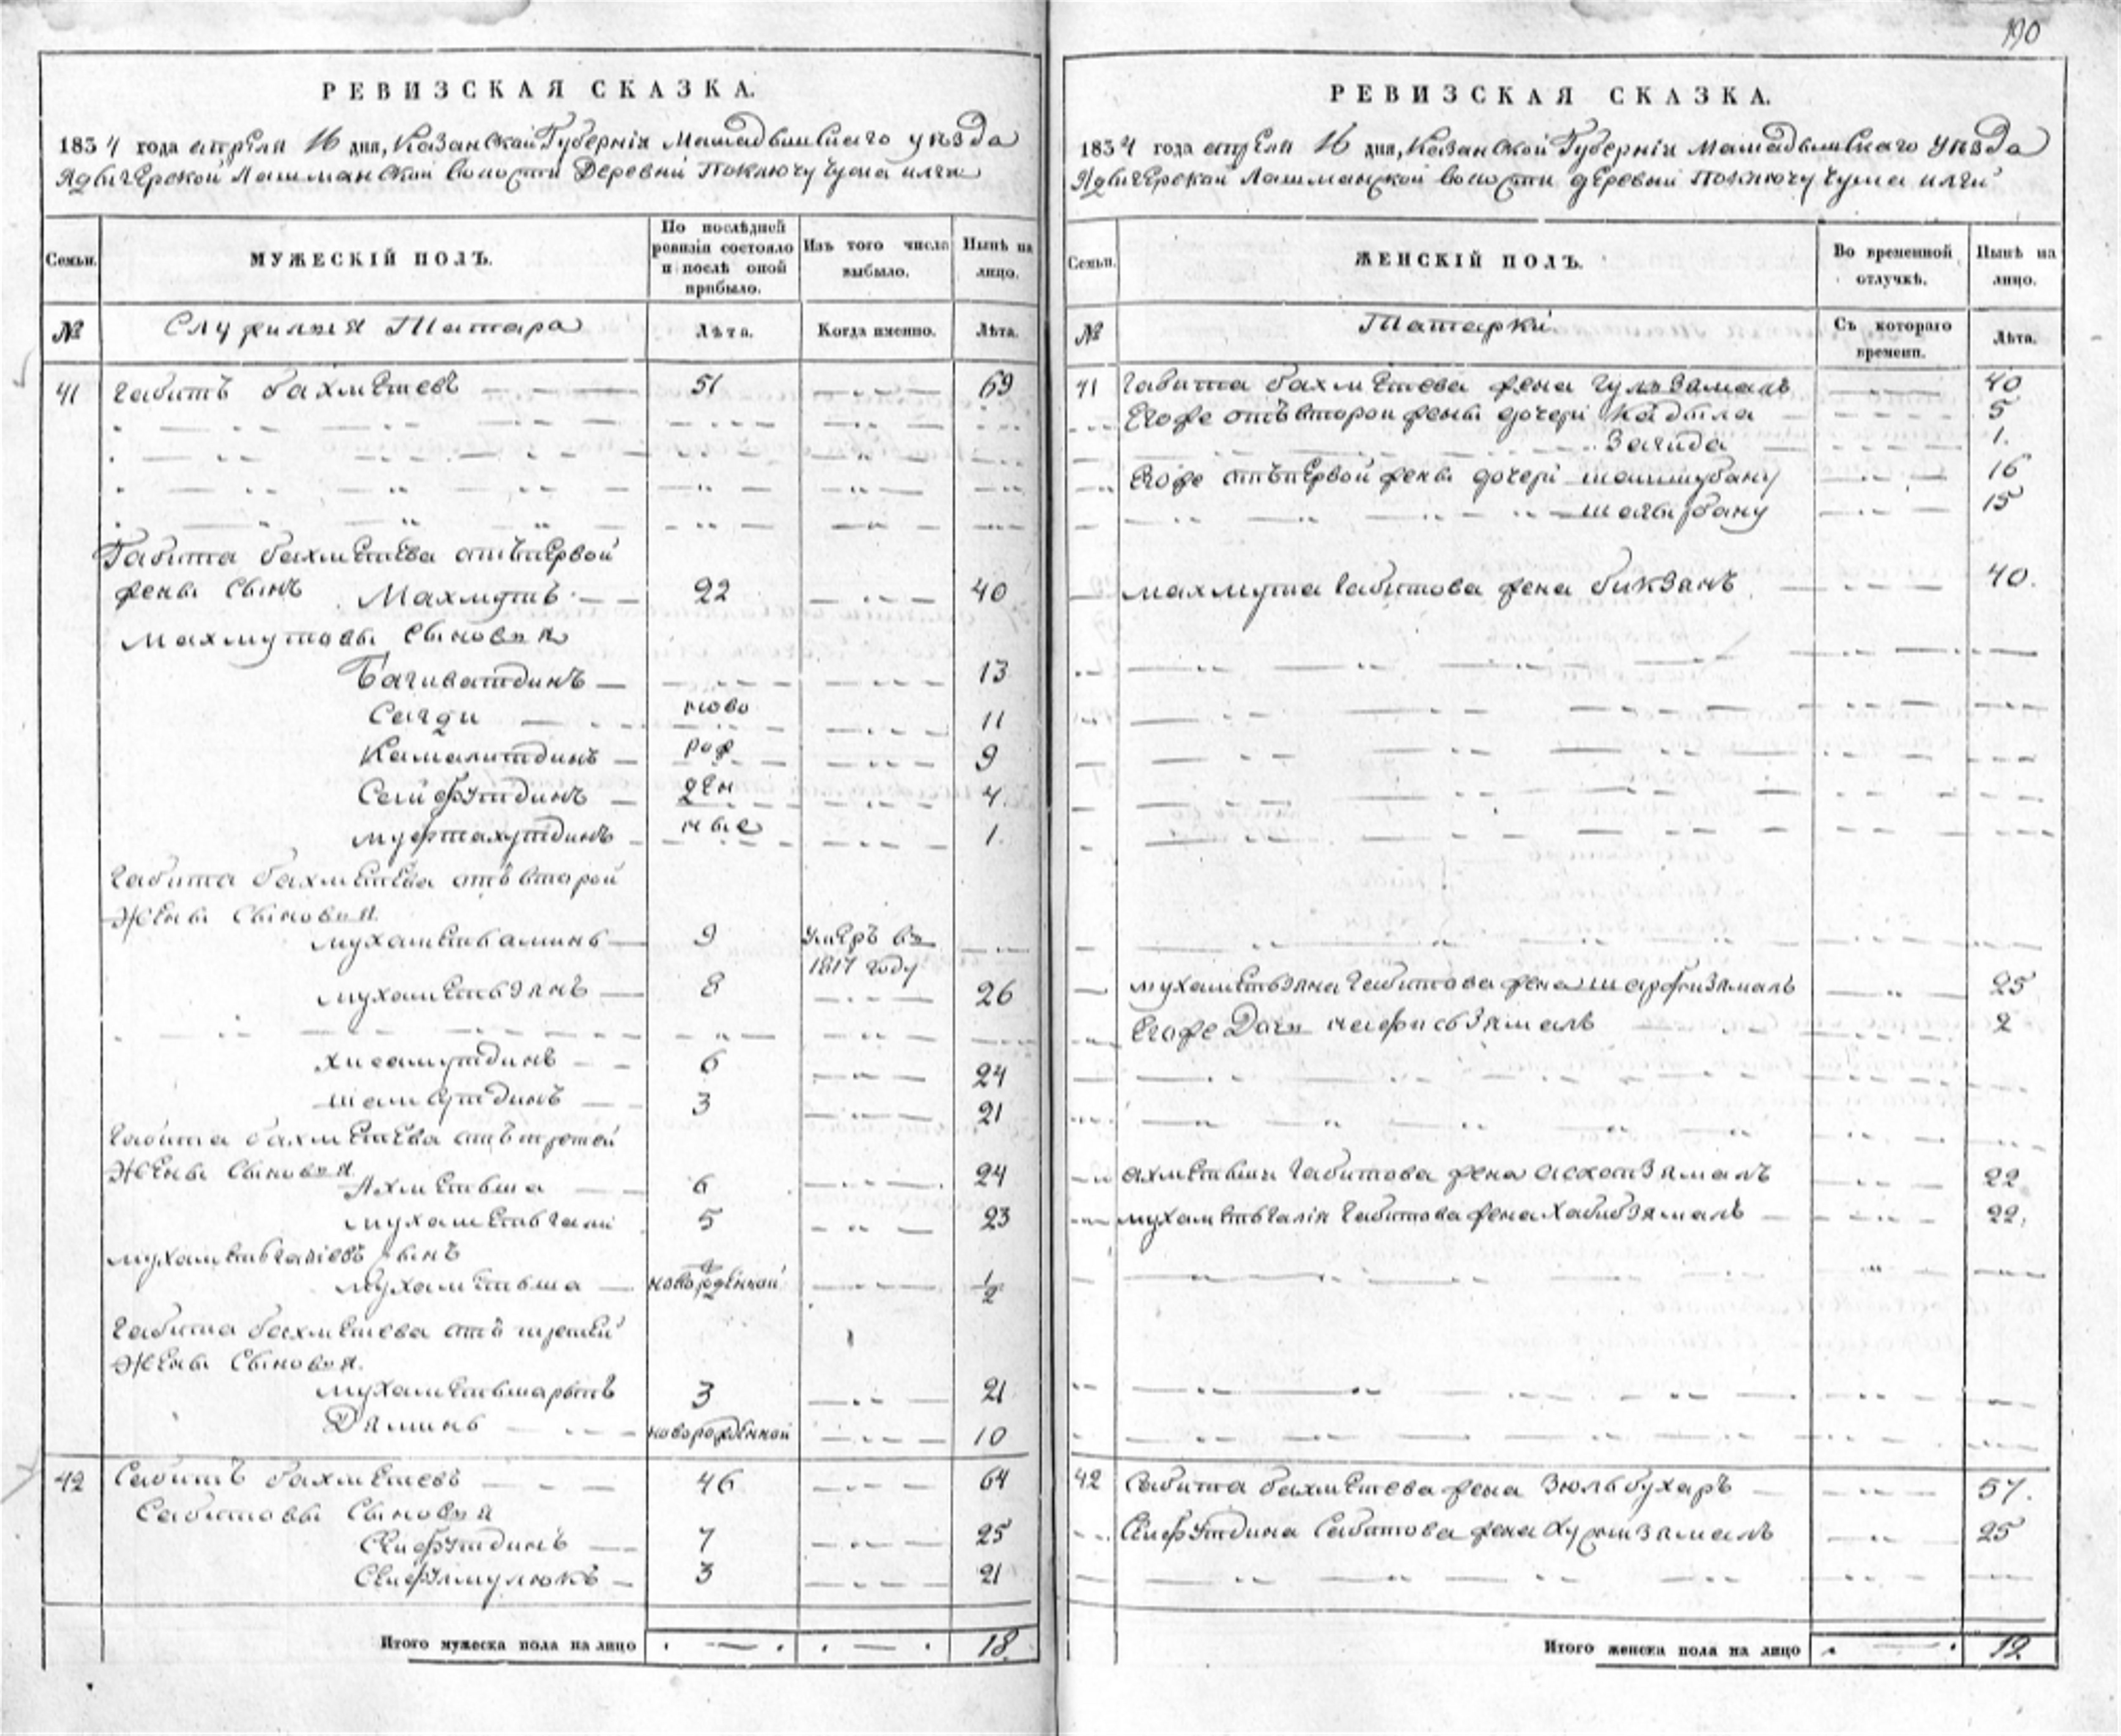 190
РЕВИЗСКАЯ СКАЗКА.
1834 года апреля 16 дня, Казанской Губернiи Мамадышскаго уезда
Адвигерской Лашманской волости Деревни Поключу Чума илги
Семьи.
МУЖЕСКІЙ ПОЛЪ.
По послѣдней ревизіи состояло и послѣ оной прибыло.
Изъ того числа выбыло.
Нынѣ на лицо.
№
Служилыя Татара
Лѣта.
Когда именно.
Лѣта.
41 Габитъ бахметевъ 51 69
Габита бахметева отъ первой
жены сынъ Махмутъ 22 40
Махмутовы сыновья
Багиватдинъ 13
Сагди ново 11
Камалитдинъ рож 9
Сейфутдинъ ден 4.
Муфтахутдинъ ные 1.
Габита бахметева отъ второй
жены сыновья
мухаметьаминь 9 умеръ въ
1817 году
мухаметьзянъ 8 26
хисамутдинъ 6 24
шамсутдинъ 3 21
Габита бахметева отъ третей
жены сыновья
Ахметьша 6 24
мухаметьгали 5 23
мухаметьгаліевъ сынъ
мухаметьша новорожденной 1/2
Габита бахметева отъ третей
жены сыновья
мухаметьшарыпъ 3 21
Яминь новорожденной 10
42 Сабитъ бахметевъ 46 64
Сабитовы сыновья
Сейфутдинъ 7 25
Сейфулмулюкъ 3 21
Итого мужеска пола на лицо 18.
РЕВИЗСКАЯ СКАЗКА.
1834 года апреля 16 дня, Казанской Губернiи Мамадышскаго уезда
Адвигерской Лашманской волости деревни Поключу Чума илги
Семьи.
ЖЕНСКІЙ ПОЛЪ.
Во временной отлучкѣ.
Нынѣ на лицо.
№
Татарки
Съ котораго времени.
Лѣта.
41 Габита бахметева жена гульзямаль 40
Егоже отъ второй жены дочери Кадыла 5
Загида 1.
Егоже отъ первой жены дочери шамшубану 16
шагыбану 15
махмута Габитова жена бикзянъ 40.
мухаметьзяна Габитова жена шарфизямаль 25
Егоже Дочь нафисьзямаль 2
ахметьши Габитова жена асхапзямалъ 22
мухаметьгалія Габитова жена Хабибзямалъ 22.
42 Сабита бахметева жена Зюльбухаръ 57.
Сейфутдина Сабитова жена Хуршизямалъ 25
Итого женска пола на лицо 12